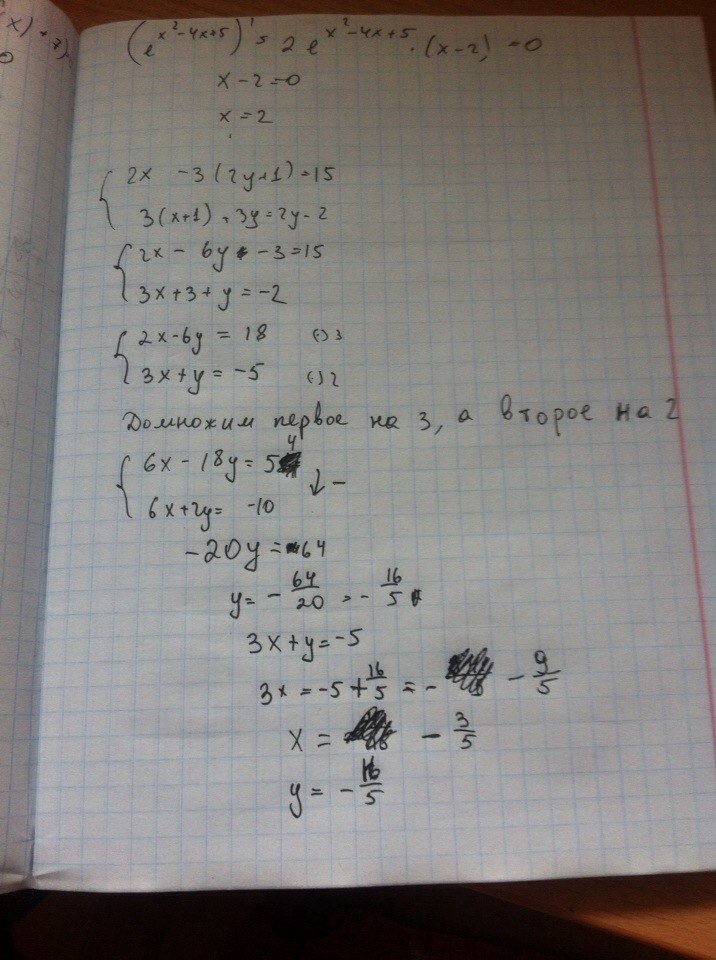 (e^{x²-4x+5})' = 2e^{x²-4x+5} · (x-2) = 0
x-2=0
x=2
{ 2x -3(2y+1)=15
3(x+1)+3y=2y-2
{ 2x - 6y -3=15
3x+3+y=-2
{ 2x-6y = 18 (·)3
3x+y= -5 (·)2
Домножим первое на 3, а второе на 2
{ 6x - 18y= 54
6x+2y= -10 ↓ -
-20y= 64
y= - 64/20 = - 16/5
3x+y=-5
3x = -5 + 16/5 = - - 9/5
x = - 3/5
y = - 16/5